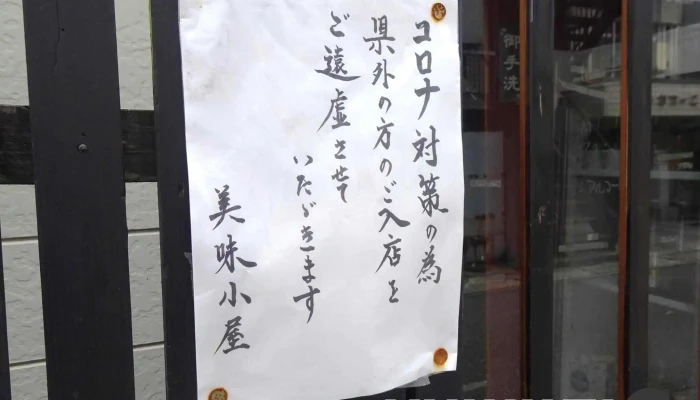 コロナ対策の為
県外の方のご入店を
ご遠虚させて
いただきます
美味小屋
御手洗